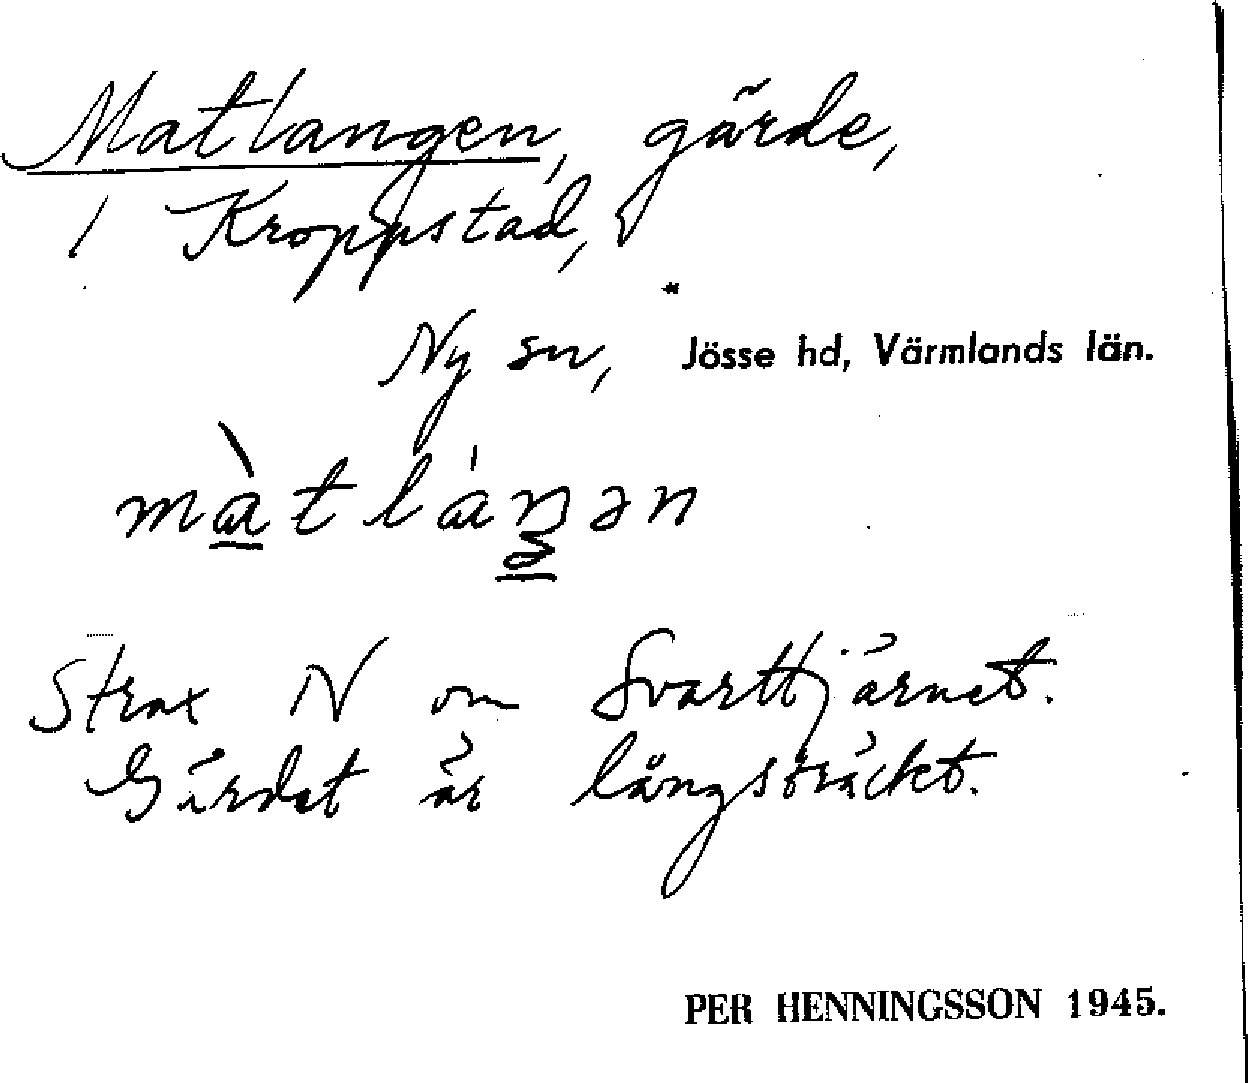 Matlangen, gärde,
i Kroppstad,
Ny sn, Jösse hd, Värmlands län.
màtláŋən
Strax N om Svarttjärnet.
Gärdet är långsträckt.
PER HENNINGSSON 1945.